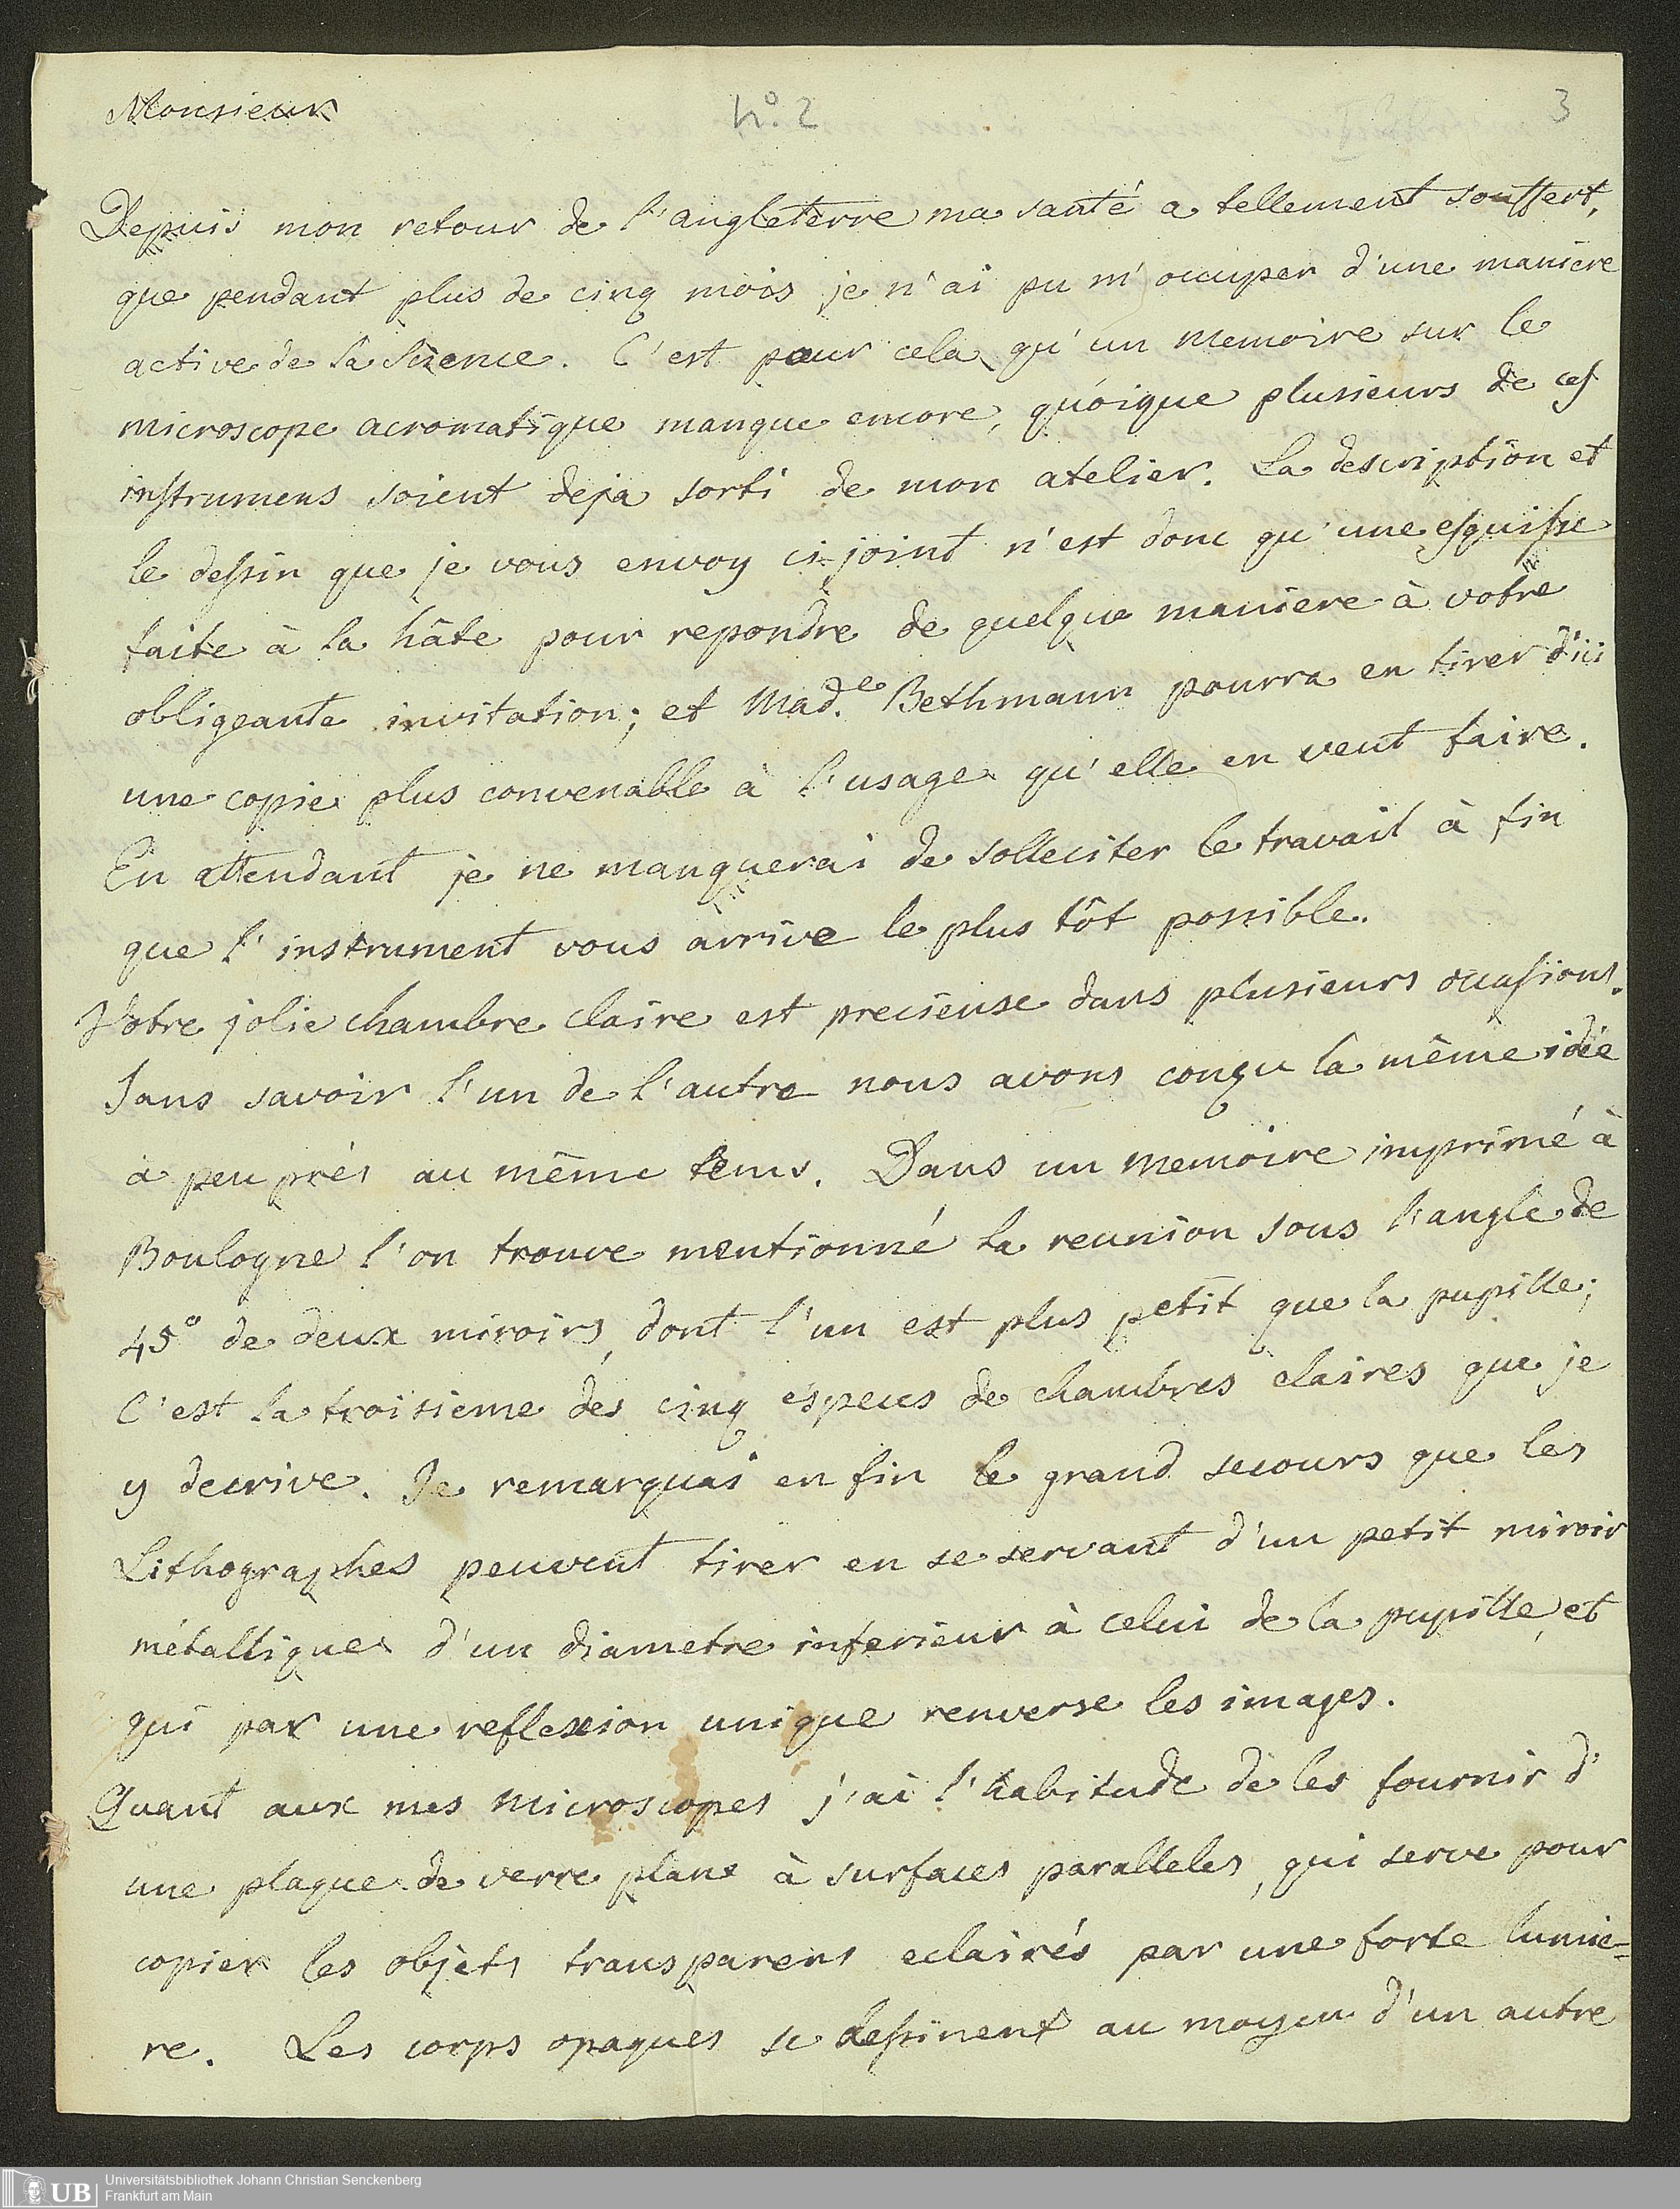 Monsieur
nº. 2
3
Depuis mon retour de l'angleterre ma santé a tellement souffert,
que pendant plus de cinq mois je n'ai pu m'occuper d'une maniere
active de la Science. C'est pour cela qu'un memoire sur le
microscope acromatique manque encore, quoique plusieurs de ces
instrumens soient deja sorti de mon atelier. La description et
le dessin que je vous envoy ci-joint n'est donc qu'une esquisse
faite à la hâte pour repondre de quelque maniere à votre
obligeante invitation; et Mad.e Bethmann pourra en tirer d'ici
une copie plus convenable à l'usage qu'elle en veut faire.
En attendant je ne manquerai de solleciter le travail à fin
que l'instrument vous arrive le plus tôt possible.
Votre jolie chambre claire est precieuse dans plusieurs occasions.
Sans savoir l'un de l'autre nous avons conçu la même idée
a peu prés au même tems. Dans un memoire imprimé à
Boulogne l'on trouve mentionné la reunion sous l'angle de
45º de deux miroirs, dont l'un est plus petit que la pupille;
C'est la troisieme des cinq especes de chambres claires que je
y decrive. Je remarquai en fin le grand secours que les
Lithographes peuvent tirer en se servant d'un petit miroir
métallique d'un diametre inferieur à celui de la pupille, et
qui par une reflexion unique renverse les images.
Quant aux mes microscopes j'ai l'habitude de les fournir d'
une plaque de verre plane à surfaces paralleles, qui serve pour
copier les objets transparens eclairés par une forte lumie-
re. Les corps opaques se dessinent au moyen d'un autre
UB
Universitätsbibliothek Johann Christian Senckenberg
Frankfurt am Main